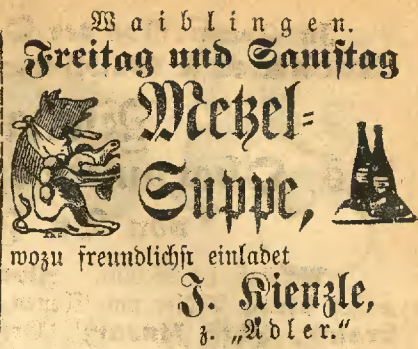 Waiblingen.
Freitag und Samstag
Metzel-
Suppe,
wozu freundlichst einladet
J. Kienzle,
z. „Adler."